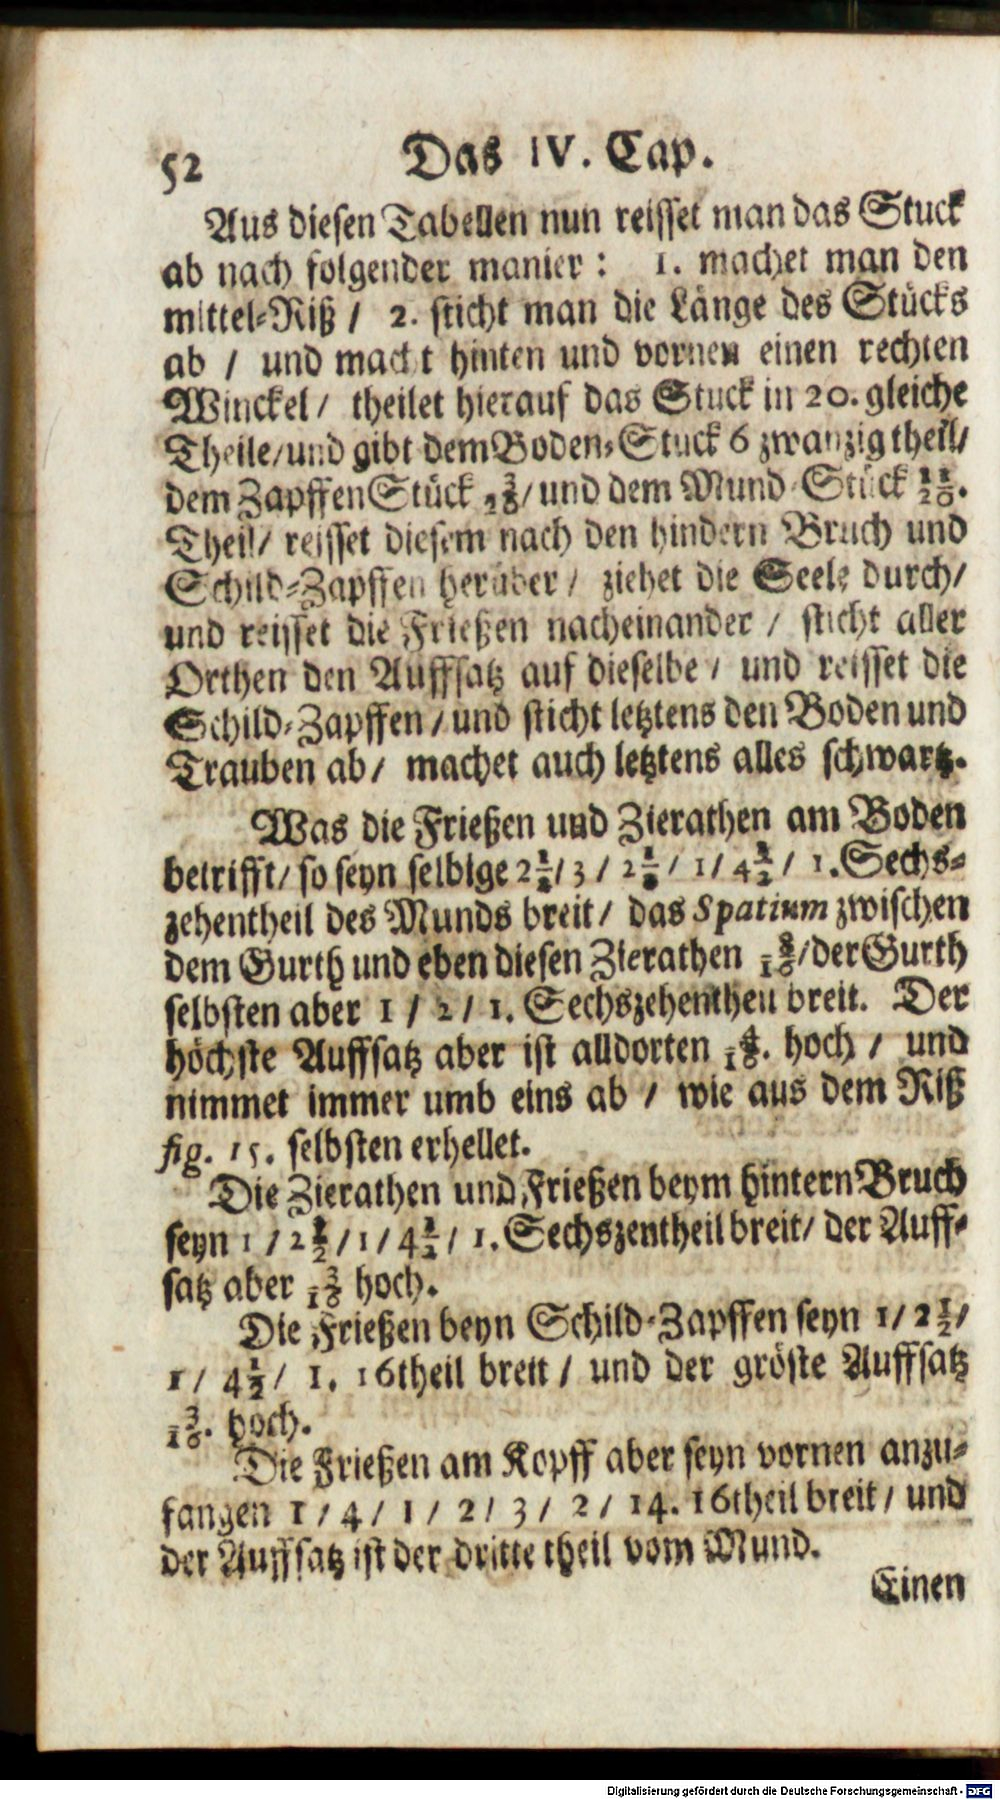 52 Das IV. Cap.
Aus diesen Tabellen nun reisset man das Stuck
ab nach folgender manier: 1. machet man den
mittel-Riß / 2. sticht man die Länge des Stücks
ab / und macht hinten und vornen einen rechten
Winckel / theilet hierauf das Stuck in 20. gleiche
Theile / und gibt dem Boden-Stuck 6 zwanzig theil /
dem Zapffen Stück 3/20 / und dem Mund-Stück 11/20.
Theil / reisset diesem nach den hindern Bruch und
Schild-Zapffen herüber / ziehet die Seele durch /
und reisset die Frießen nacheinander / sticht aller
Orthen den Auffsatz auf dieselbe / und reisset die
Schild-Zapffen / und sticht letztens den Boden und
Trauben ab / machet auch letztens alles schwartz.
Was die Frießen und Zierathen am Boden
betrifft / so seyn selbige 2 1/2 / 3 / 2 1/2 / 1 / 4 1/2 / 1. Sechs-
zehentheil des Munds breit / das Spatium zwischen
dem Gurth und eben diesen Zierathen 8/16 / der Gurth
selbsten aber 1 / 2 / 1. Sechszehentheil breit. Der
höchste Auffsatz aber ist alldorten 4/16. hoch / und
nimmet immer umb eins ab / wie aus dem Riß
fig. 15. selbsten erhellet.
Die Zierathen und Frießen beym hintern Bruch
seyn 1 / 2 1/2 / 1 / 4 1/2 / 1. Sechszentheil breit / der Auff-
satz aber 3/16 hoch.
Die Frießen beyn Schild-Zapffen seyn 1 / 2 1/2 /
1 / 4 1/2 / 1. 16theil breit / und der gröste Auffsatz
3/16. hoch.
Die Frießen am Kopff aber seyn vornen anzu-
fangen 1 / 4 / 1 / 2 / 3 / 2 / 14. 16theil breit / und
der Auffsatz ist der dritte theil vom Mund.
Einen
Digitalisierung gefördert durch die Deutsche Forschungsgemeinschaft - DFG